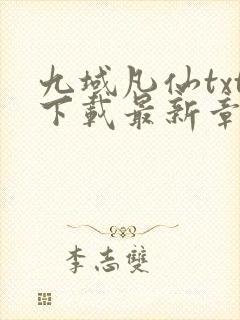 九域凡仙txt
下載最新章
李志雙